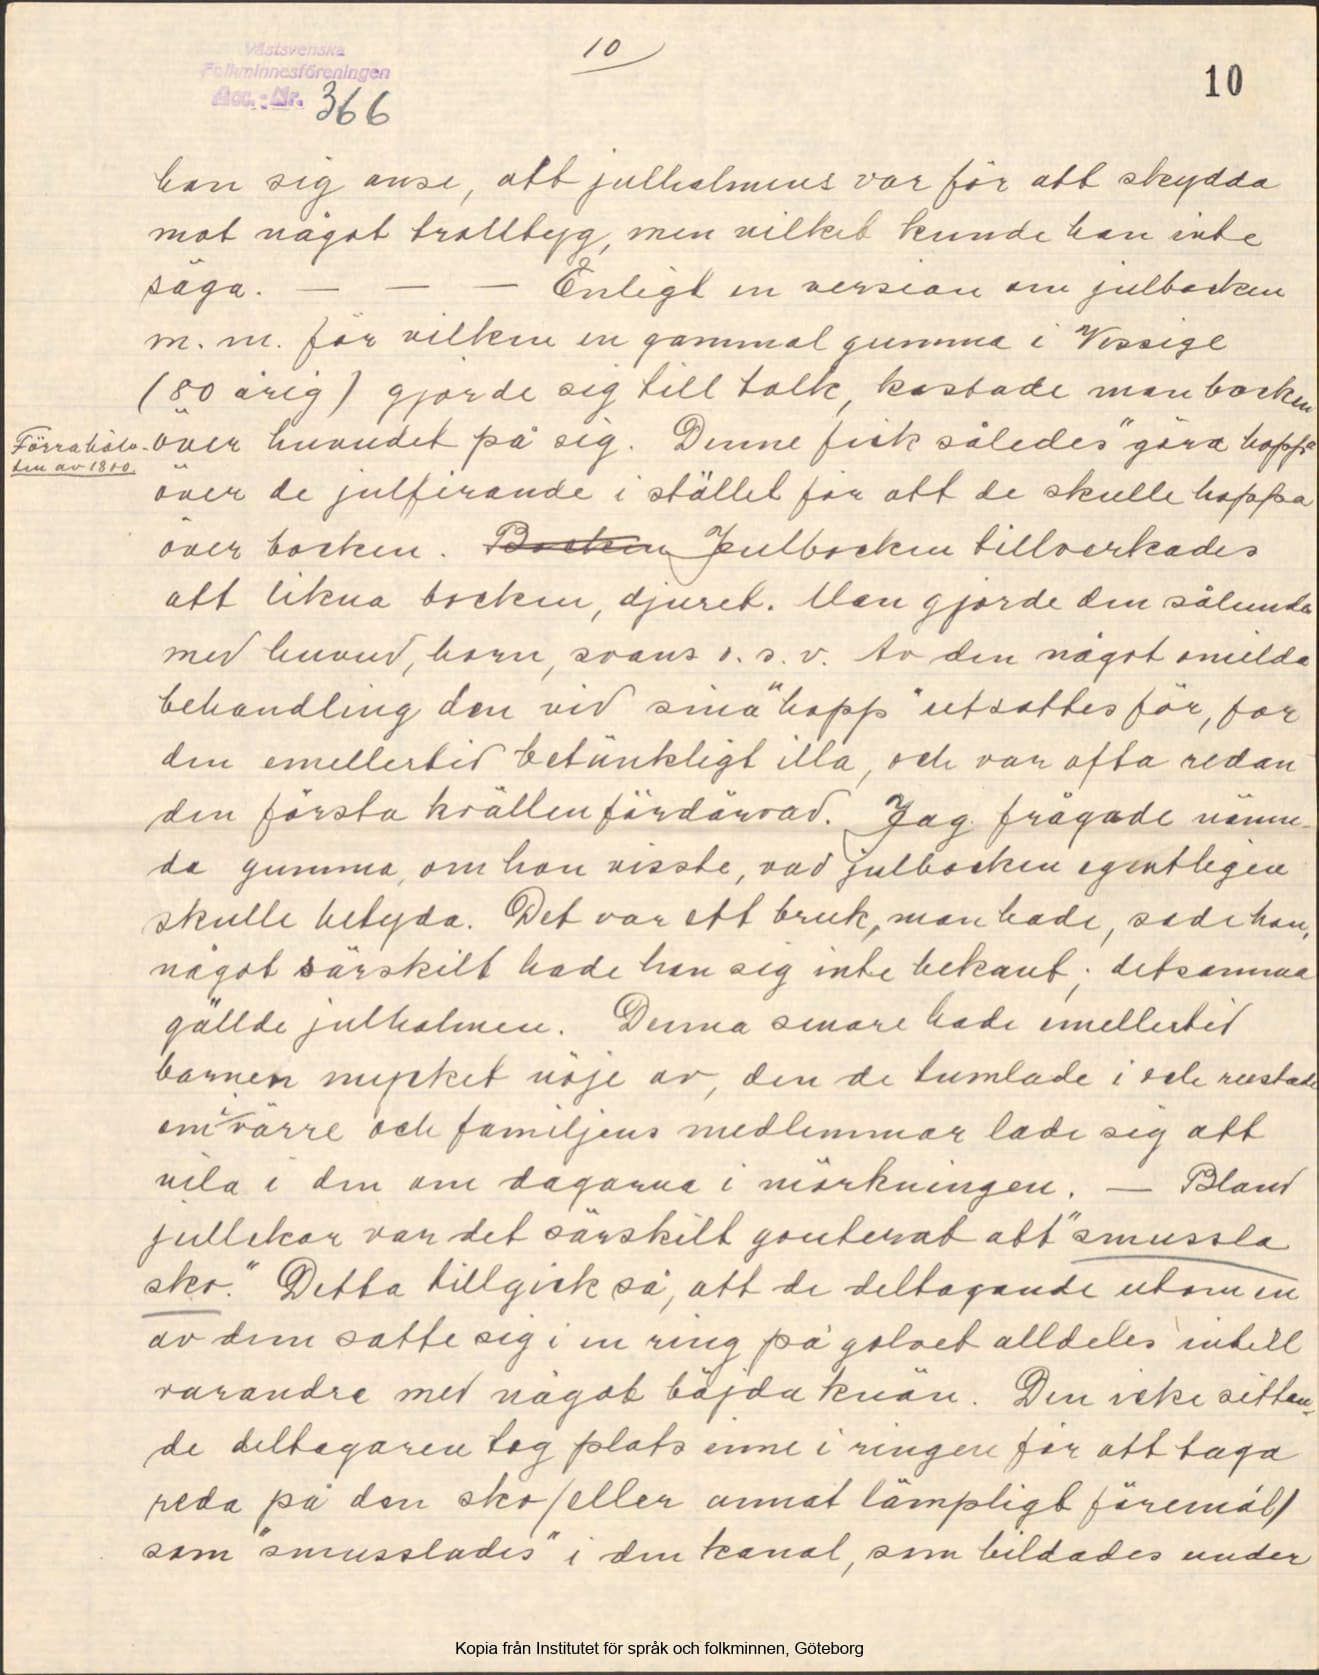 Västsvenska
Folkminnesföreningen
Acc.-Nr. 366
10
10
han sig anse, att julhalmens var för att skydda
mot något trolltyg, men vilket kunde han inte
säga. — — — Enligt en version om julbocken
m. m. för vilken en gammal gumma i Vessige
(80 årig) gjorde sig till tolk, kastade man bocken
Förra hälv-
ten av 1800.
över huvudet på sig. Denne fick således "göra hopp"
över de julfirande i stället för att de skulle hoppa
över bocken. Bocken Julbocken tillverkades
att likna bocken, djuret. Man gjorde den sålunda
med huvud, horn, svans o. s. v. Av den något omilda
behandling den vid sina "hopp" utsattes för, for
den emellertid betänkligt illa, och var ofta redan
den första kvällen fördärvad. Jag frågade nämn-
da gumma, om hon visste, vad julbocken egentligen
skulle betyda. Det var ett bruk, man hade, sade hon,
något särskilt hade hon sig inte bekant; detsamma
gällde julhalmen. Denna senare hade emellertid
barnen mycket nöje av, den de tumlade i och rustade
om i värre och familjens medlemmar lade sig att
vila i den om dagarna i mörkningen. — Bland
jullekar var det särskilt gouterat att "smussla
sko." Detta tillgick så, att de deltagande utom en
av dem satte sig i en ring på golvet alldeles intill
varandra med något böjda knän. Den icke sittan-
de deltagaren tog plats inne i ringen för att taga
reda på den sko (eller annat lämpligt föremål)
som "smusslades" i den kanal, som bildades under
Kopia från Institutet för språk och folkminnen, Göteborg